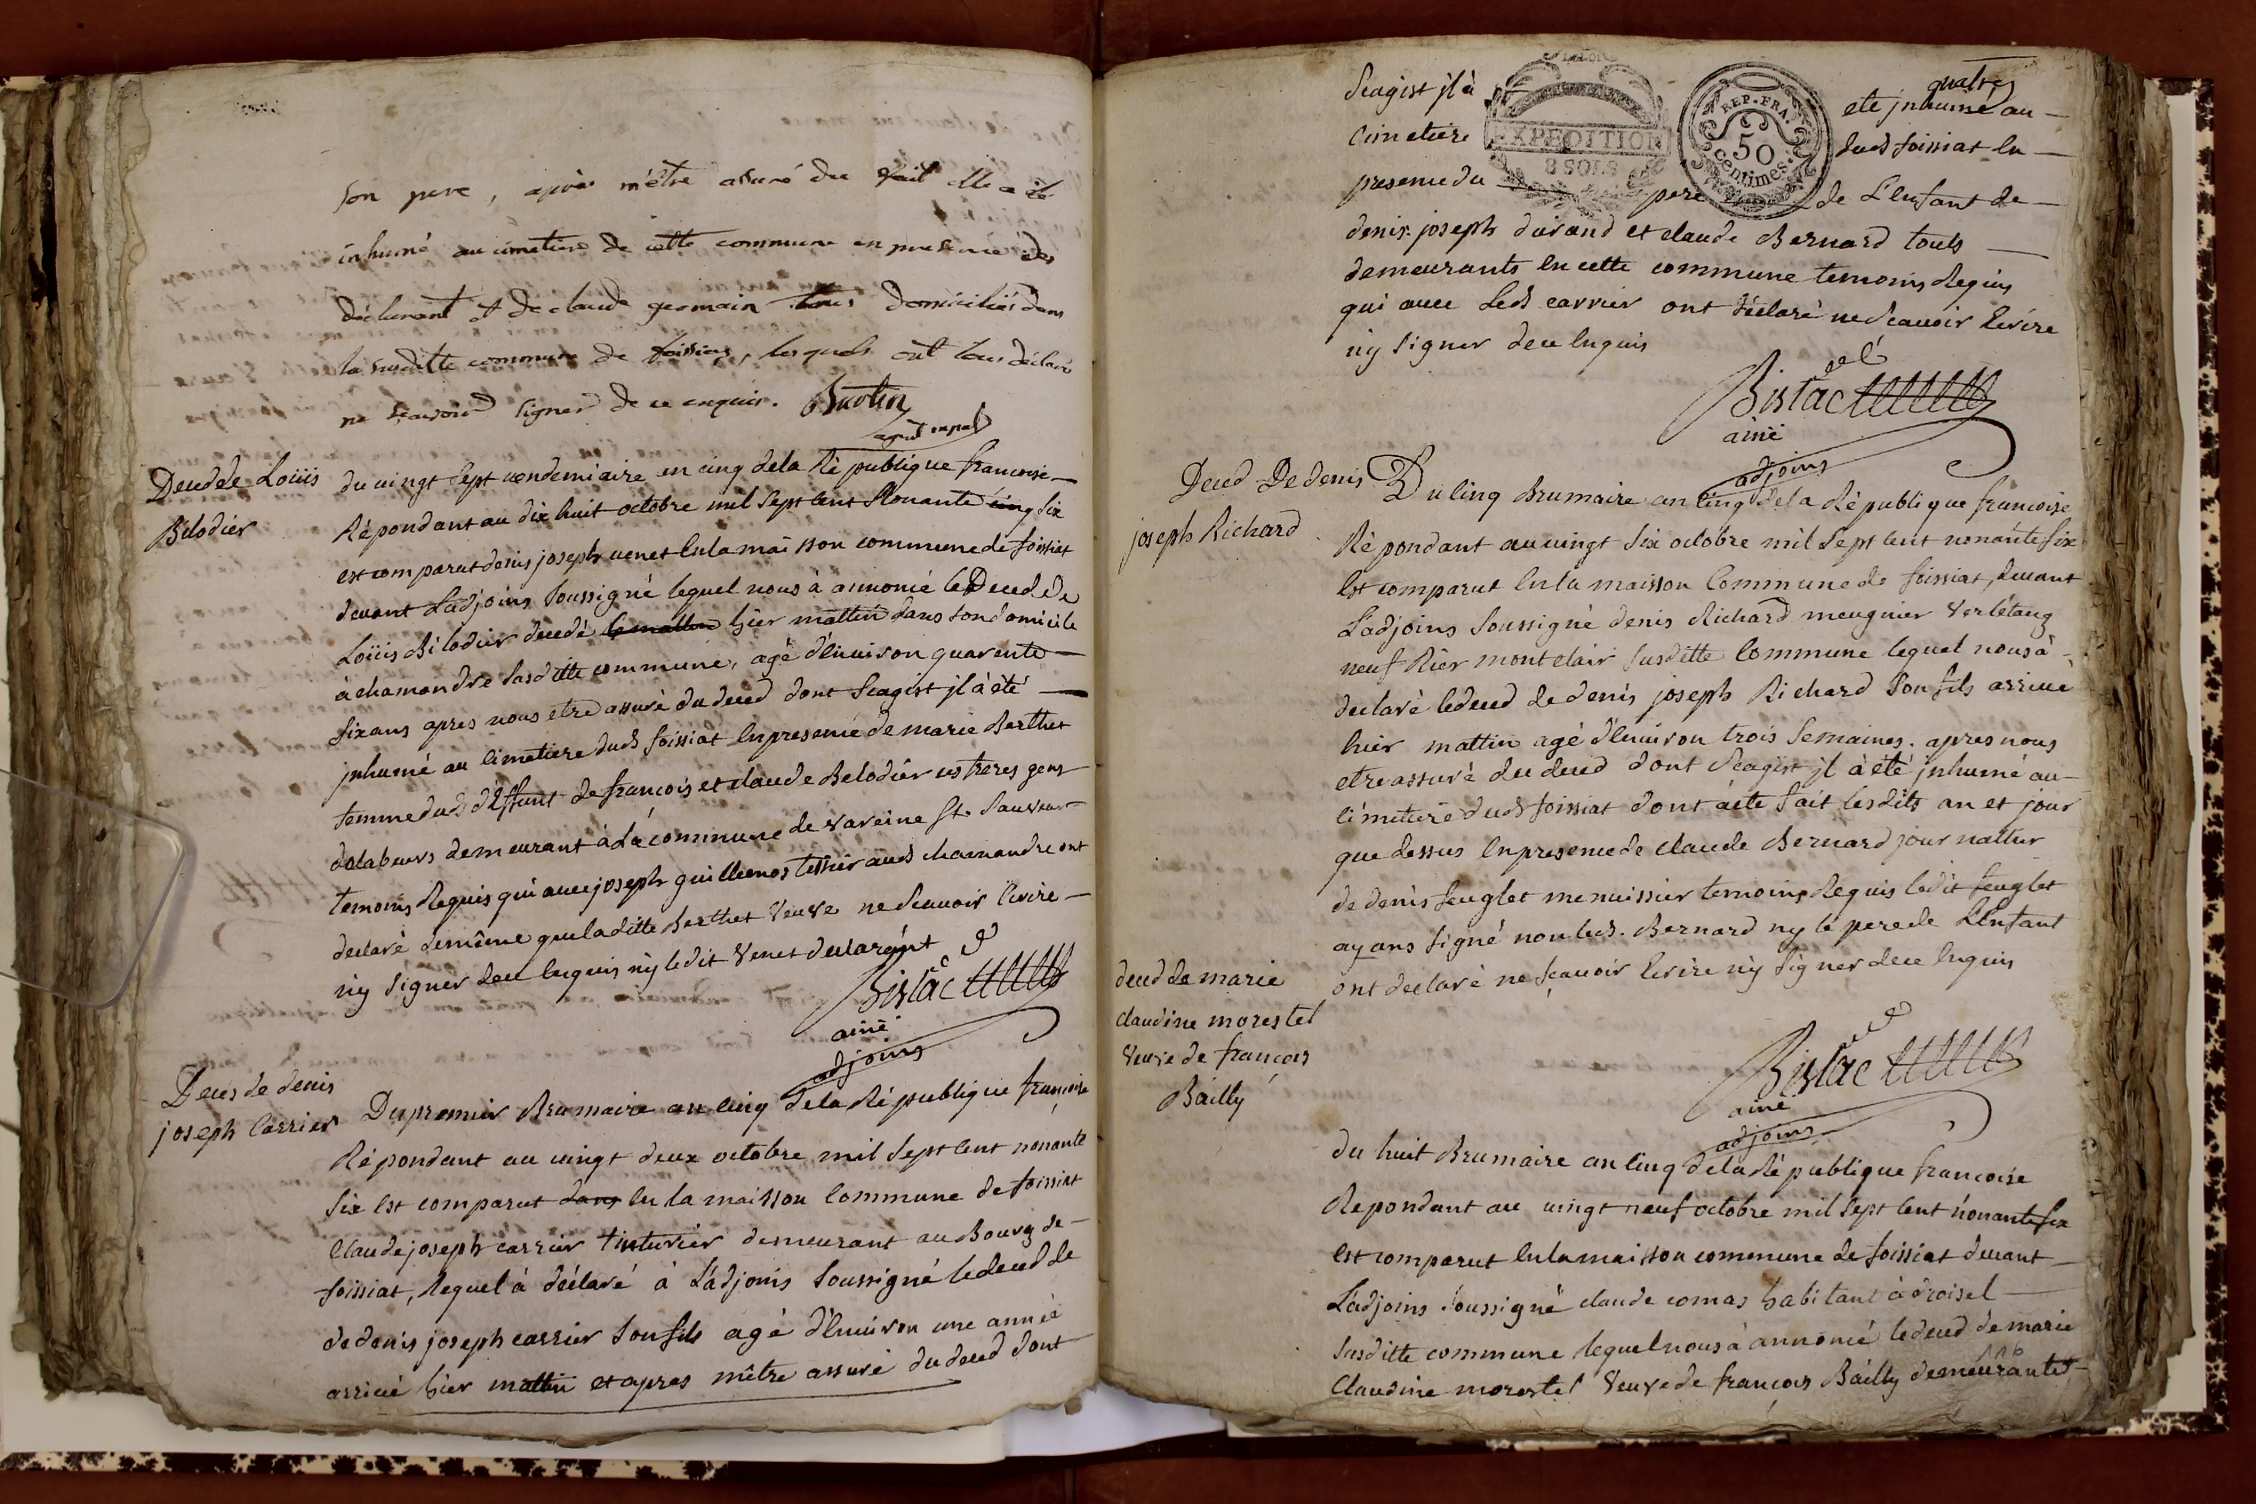 son pere, aprés m'être assuré du fait elle a été
inhumé au cimetiere de cette commune en presence des
déclarant et de claude germain tous domiciliés dans
la susditte commune de foissiat, lesquels ont tous déclaré
ne sçavoir signer de ce enquis. Buolin
agent mpal
Deced de Loüis
Bélodier
du vingt sept vendemiaire en cinq de la République francoise
Répondant au dix huit octobre mil sept cent Nonante cinq six
est comparut denis joseph venet en la maisson commune de foissiat
devant L'adjoins soussigné lequel nous à annoncé le Deced de
Loüis Bélodier decedé le mattin hier mattin dans son domicile
à chamandre susditte commune, agé d'environ quarente
six ans apres nous etre assuré du deced dont seagist jl à été
jnhumé au cimetiere dud foissiat en presence de marie Berthet
femme dud déffunt de francois et claude Belodier ses freres gens
de labeurs demeurant à la commune de vareine st. sauveur
temoins Requis qui avec joseph guillemos tessier aud chamandre ont
declaré de même que laditte Berthet veuve ne scavoir Ecrire
ny signer de ce enquis ny ledit venet declarant
Bislac
ainé
adjoins
Deces de denis
joseph Carrier
Du premier Brumaire an cinq de la République francoise
Répondant au vingt deux octobre mil sept cent nonante
six est comparut dans en la maisson Commune de foissiat
Claude joseph carrier tinturier demeurant au Bourg de
foissiat, lequel à déclaré à L'adjoins soussigné le deced de
de denis joseph carrier son fils agé d'environ une année
arrivé hier mattin et apres mêtre assuré du deced dont
quatre
Seagist jl à été jnhumé au
Cimetiere dud foissiat en
EXPEDITION
8 SOLS
REP. FRA.
50
centimes.
presence du pere de L'enfant de
denis joseph durand et claude Bernard touts
demeurants en cette commune temoins Requis
qui avec led carrier ont déclaré ne scavoir Ecrire
ny signer de ce enquis
Bislac
ainé
adjoins
Deced De denis
joseph Richard
Du cinq Brumaire an cinq de la République francoise
Répondant au vingt six octobre mil sept cent nonante six
Est comparut en la maisson Commune de foissiat, devant
L'adjoins soussigné denis Richard meugnier verlétang
neuf Rier montclair susditte Commune lequel nous à
declaré le deced de denis joseph Richard son fils arrivé
hier mattin agé d'environ trois semaines. apres nous
etre assuré du deced dont seagist jl à été jnhumé au
cimetiere dud foissiat dont à été fait les dits an et jour
que dessus en presence de claude Bernard journallier
de denis feuglet menuissier temoins Requis ledit feuglet
ayans signé non led. Bernard ny le pere de L'enfant
ont declaré ne sçavoir Ecrire ny signer de ce enquis
Bislac
ainé
adjoins
deced de marie
claudine morestel
veuve de francois
Bailly
du huit Brumaire an cinq de la République francoise
Repondant au vingt neuf octobre mil sept cent nonante six
est comparut en la maisson commune de foissiat devant
L'adjoins soussigné claude comas habitant à droisel
susditte commune lequel nous à annoncé le deced de marie
Claudine morestel veuve de francois Bailly demeurante